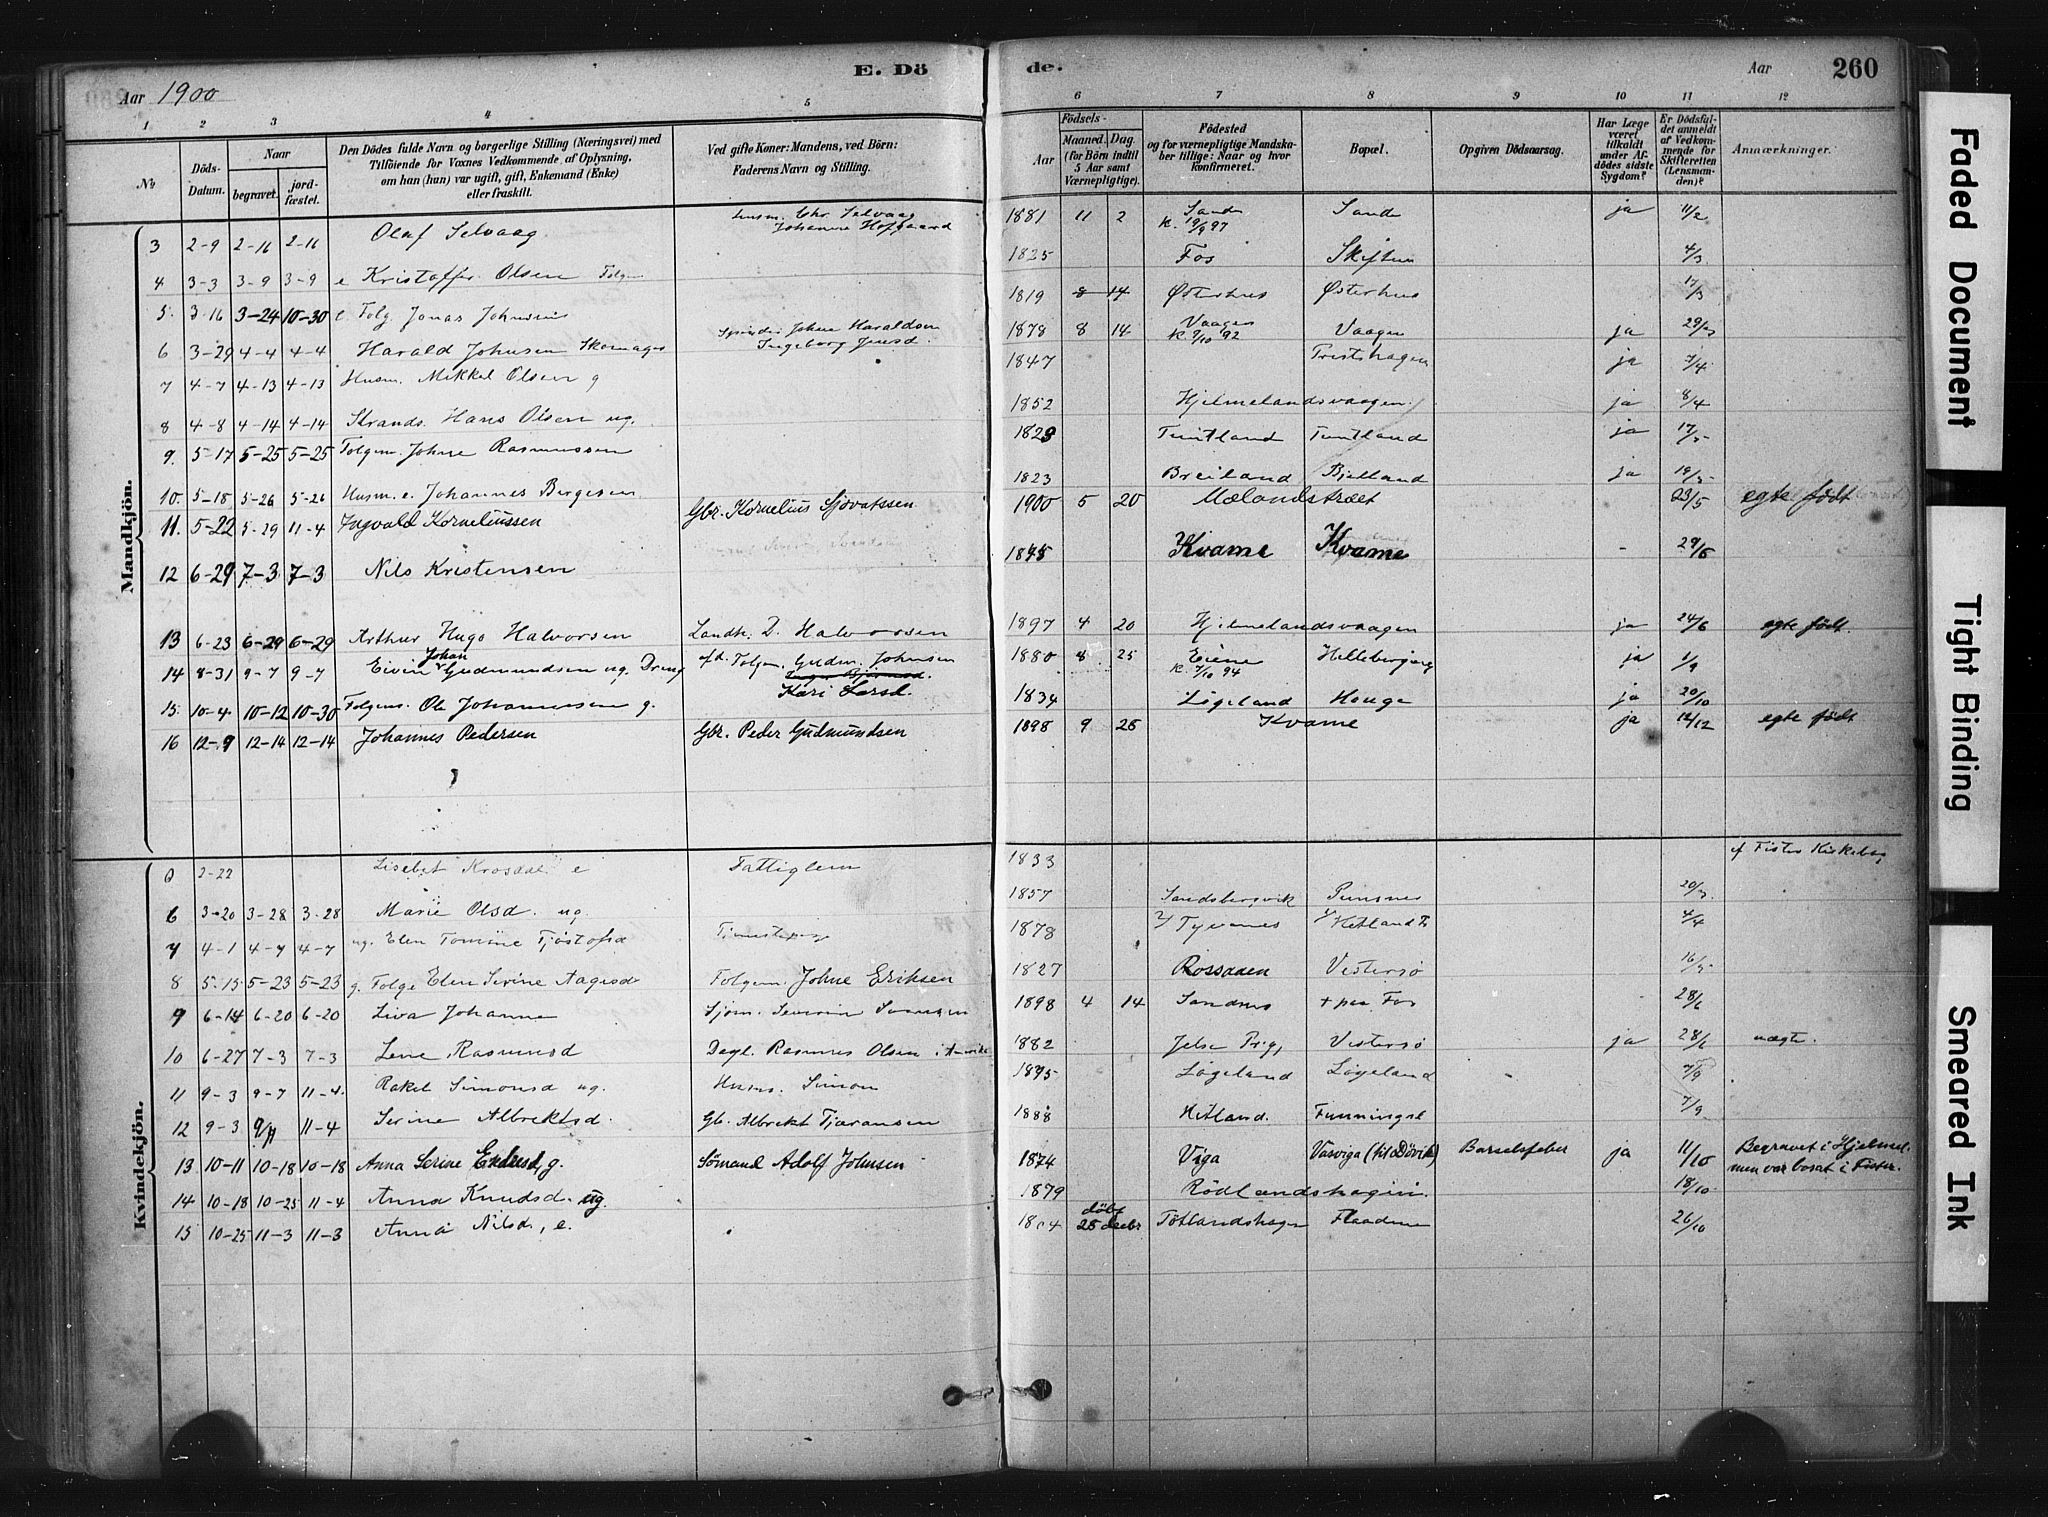 Aar 1900
E. Dö
de.
Aar 260
1 2 3 4 5 6 7 8 9 10 11 12
No
Döds-Datum.
Naar
begravet.
jord-fæstet.
Den Dödes fulde Navn og borgerlige Stilling (Næringsvei) med
Tilföiende for Voxnes Vedkommende, af Oplysning,
om han (hun) var ugift, gift, Enkemand (Enke)
eller fraskilt.
Ved gifte Koner: Mandens, ved Börn:
Faderens Navn og Stilling.
Aar
Födsels-
Maaned. Dag.
(for Börn indtil
5 Aar samt
Værnepligtige).
Födested
og for værnepligtige Mandska-
ber tillige: Naar og hvor
konfirmeret.
Bopæl.
Opgiven Dödsaarsag.
Har Læge
været
tilkaldt
under Af-
dödes sidste
Sygdom?
Er Dödsfal-
det anmeldt
af Vedkom-
mende for
Skifteretten
(Lensman-
den)?
Anmærkninger.
Mandkjön.
3 2-9 2-16 2-16 Olaf Selvaag Husm. Chr Selvaag Johanne Hofgaard 1881 11 2 Sande K. 19/9 97 Sande ja 11/2
4 3-3 3-9 3-9 e Kristoffer Olsen Folgm 1825 Fos Skiftun 4/3
5. 3-16 3-24 10-30 e. Folg. Jonas Johnsen 1819 8 14 Østerhus Østerhus 17/3
6 3-29 4-4 4-4 Harald Johnsen Skomager Johne Haraldsen Ingeborg Jensd. 1878 8 14 Vaagen K 2/10 92 Vaagen ja 29/3
7 4-7 4-13 4-13 Husm. Mikkel Olsen g 1847 ja 7/4
8 4-8 4-14 4-14 Strands. Hans Olsen ug. 1852 Hjelmelandsvaagen ja 8/4
9. 5-17 5-25 5-25 Folgem. Johne Rasmussen 1829 Tuntland Tuntland ja 17/5
10. 5-18 5-26 5-26 Husm. e. Johannes Børgesen 1823 Breiland Bjelland ja 19/5
11. 5-22 5-29 11-4 Ingvald Korneliussen Gbr. Kornelius Sjovatssen 1900 5 20 Mælandstræet 23/5 egte födt
12 6-29 7-3 7-3 Nils Kristensen 1845 Kvame Kvame - 29/6
13 6-23 6-29 6-29 Arthur Hugo Halvorsen Landh. D. Halvorsen 1897 4 20 Hjelmelandsvaagen ja 24/6 egte födt.
14 8-31 9-7 9-7 Eivin Johan Gudmundsen ug. Dreng afd. Folgem. Gudm. Johnsen Kari Larsd. 1880 8 25 Eiene K. 7/10 94 Helleberjorg ja 1/9
15. 10-4 10-12 10-30 Folgem. Ole Johannessen g. 1834 Løgeland Hauge ja 20/10
16 12-9 12-14 12-14 Johannes Pedersen Gbr. Peder Gudmundsen 1898 9 28 Kvame ja 12/12 egte födt
Kvindekjön.
2-22 Lisebet Krosdal e Fattiglem 1833 Fister Kirkebog
6 3-20 3-28 3-28 Marie Olsd. ug. 1857 Sandsbergvik Punsnes 20/3
7 4-1 4-7 4-7 ug. Elen Tomine Tjøstofsd 1878 Tyvenes Hetland 4/4
8 5-15 5-23 5-23 g. Folge Elen Serine Aagesd Folgem. Johne Eriksen 1827 Rossaaen Vestersø 16/5
9 6-14 6-20 6-20 Liva Johanne Sjøm. Severin Svensen 1898 4 14 Sandnes + paa Fos 28/6
10 6-27 7-3 7-3 Lene Rasmusd Dagl. Rasmus Olsen i Amerika 1882 Jelse Prg. Vestersø ja 28/6 uægte.
11 9-3 9-7 11-4 Rakel Simonsd ug. Husm. Simon 1875 Løgeland Løgeland 7/9
12 9-3 9/7 11-4 Serine Albrektsd. Gb. Albrekt Tjøransen 1888 Hetland. Funningsl 7/9
13 10-11 10-18 10-18 Anna Serine Endresd, g. Sömand Adolf Johnsen 1874 Viga Vasviga (til Dövik) Barselsfeber ja 11/10 Begravet i Hjelmel. men var bosat i Fister.
14 10-18 10-25 11-4 Anna Knudsd. ug. 1879 Rødlandshagen 18/10
15 10-25 11-3 11-3 Anna Nilsd, e. 1804 döbt 28 decbr Tøtlandshagen Flaadene 26/10
Faded Document
Tight Binding
Smeared Ink